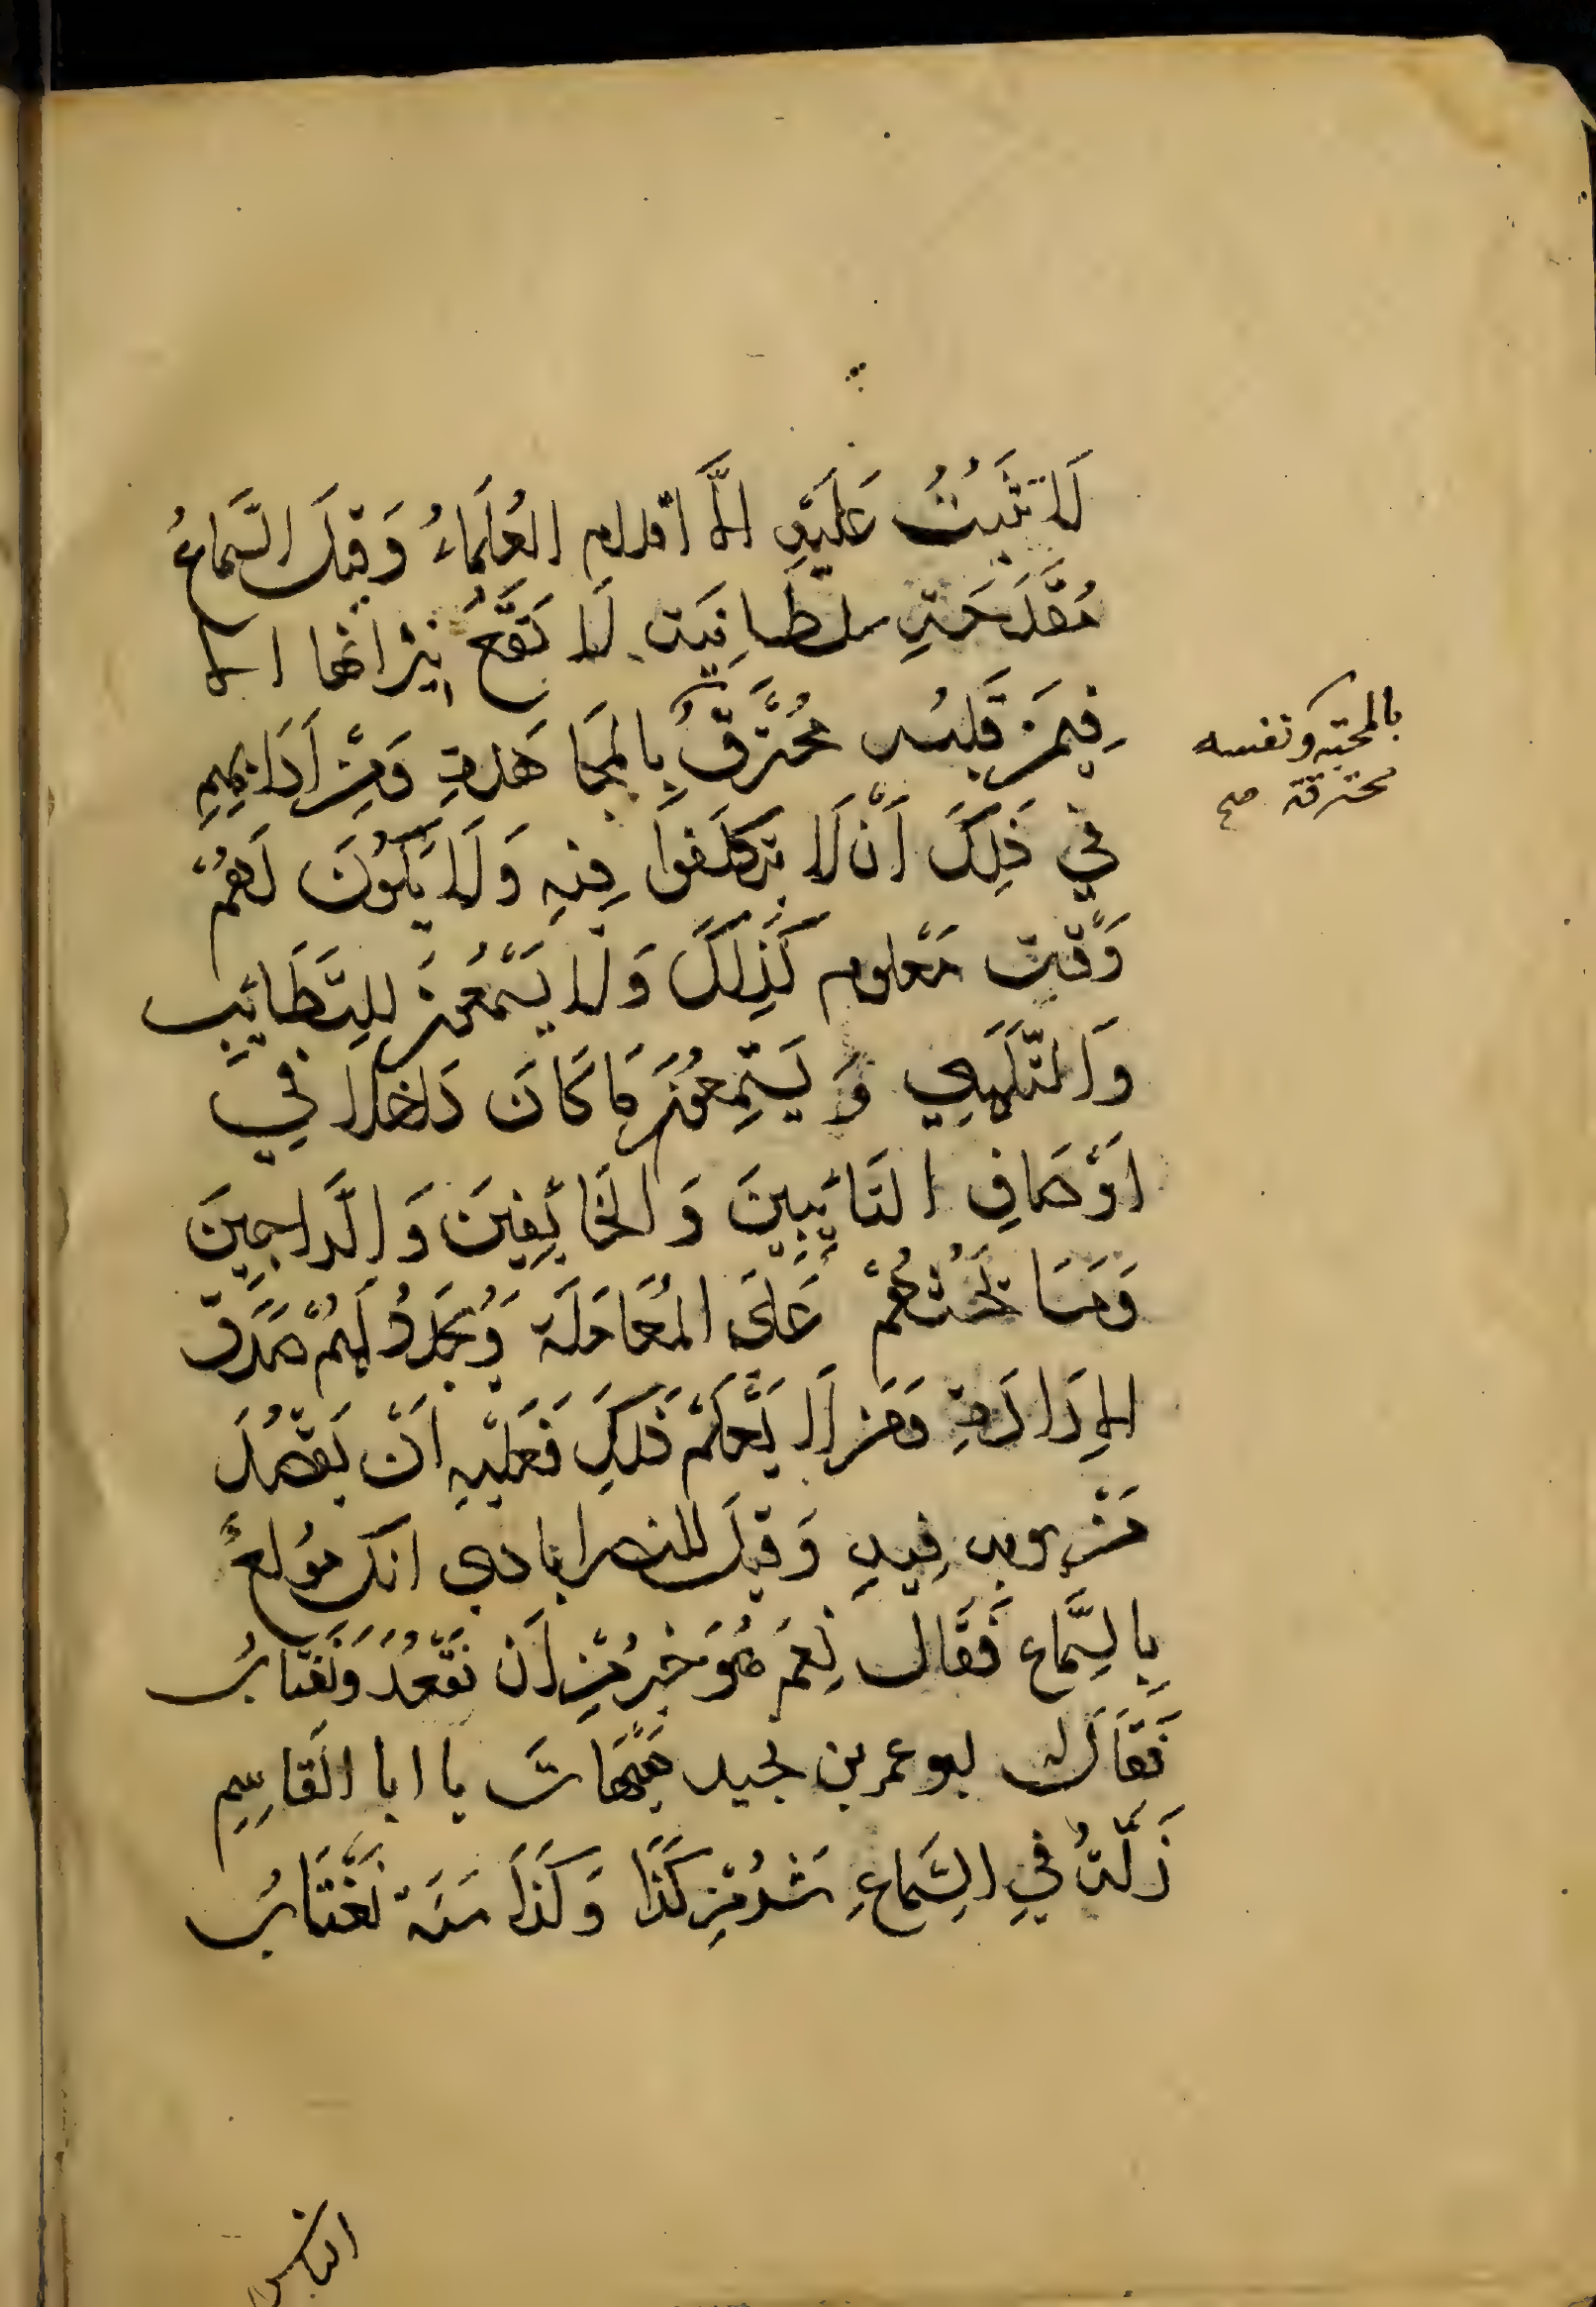 لَا تَثْبُتُ عَلَيْهِ الَّا اقدام العُلَمَاءُ وَقِيْلَ السَّمَاعُ
مُقَدَحَةِ سلطَانِيَة لَا تَقَعُ نِيْرَانُهَا الا
فِيْمَنْ قَلْبُه مُحْتَرِقٌ بِالمجَاهَدةِ وَمِنْ اَدَابِهِمِ
بالمحبه ونفسه
محترقة صح
فِي ذَلِكَ اَنْ لَا يتَكلَفُوا فِيْهِ وَلَا يَكُوْنَ لَهُمْ
وَقْت مَعْلوم كَذَلِكَ وَلا يَسْمَعُوْنَ لِلتَطَايُبِ
وَالتَّلَهِي وَ يَسْتَمِعُوْنَ مَا كَانَ دَاخِلا فِي
اَوْصَافِ التَائِبِيْنَ وَالخَائِفِيْنَ وَالرَاجِيْنَ
وَمَا يَحُثُّهُمْ عَلَى المُعَامَلَة وَيُجَدِدُ لَهُمْ صَدَق
الاِرَادَةِ وَمَن لَا يَعْلَمْ ذَلِكَ فَعَلَيْهِ اَنْ يَقْصُدَ
مَنْ يوبه فِيهِ وَقيْلَ للنصرابادي انك مُوْلعٌ
بِالسَّمَاعِ فَقَالَ نِعَمْ هُوَ خير مِنْ اَن نَقْعُدُ وَنَغتَابُ
فَقَالَ لهُ بو عمر بن نجيد هَيْهَاتَ يا ابا القَاسِمِ
زَلّةُ فِي السَّمَاعِ شدُ مِنْ كَذَا وَكَذَا سَنَة نَغْتَابُ
الناس